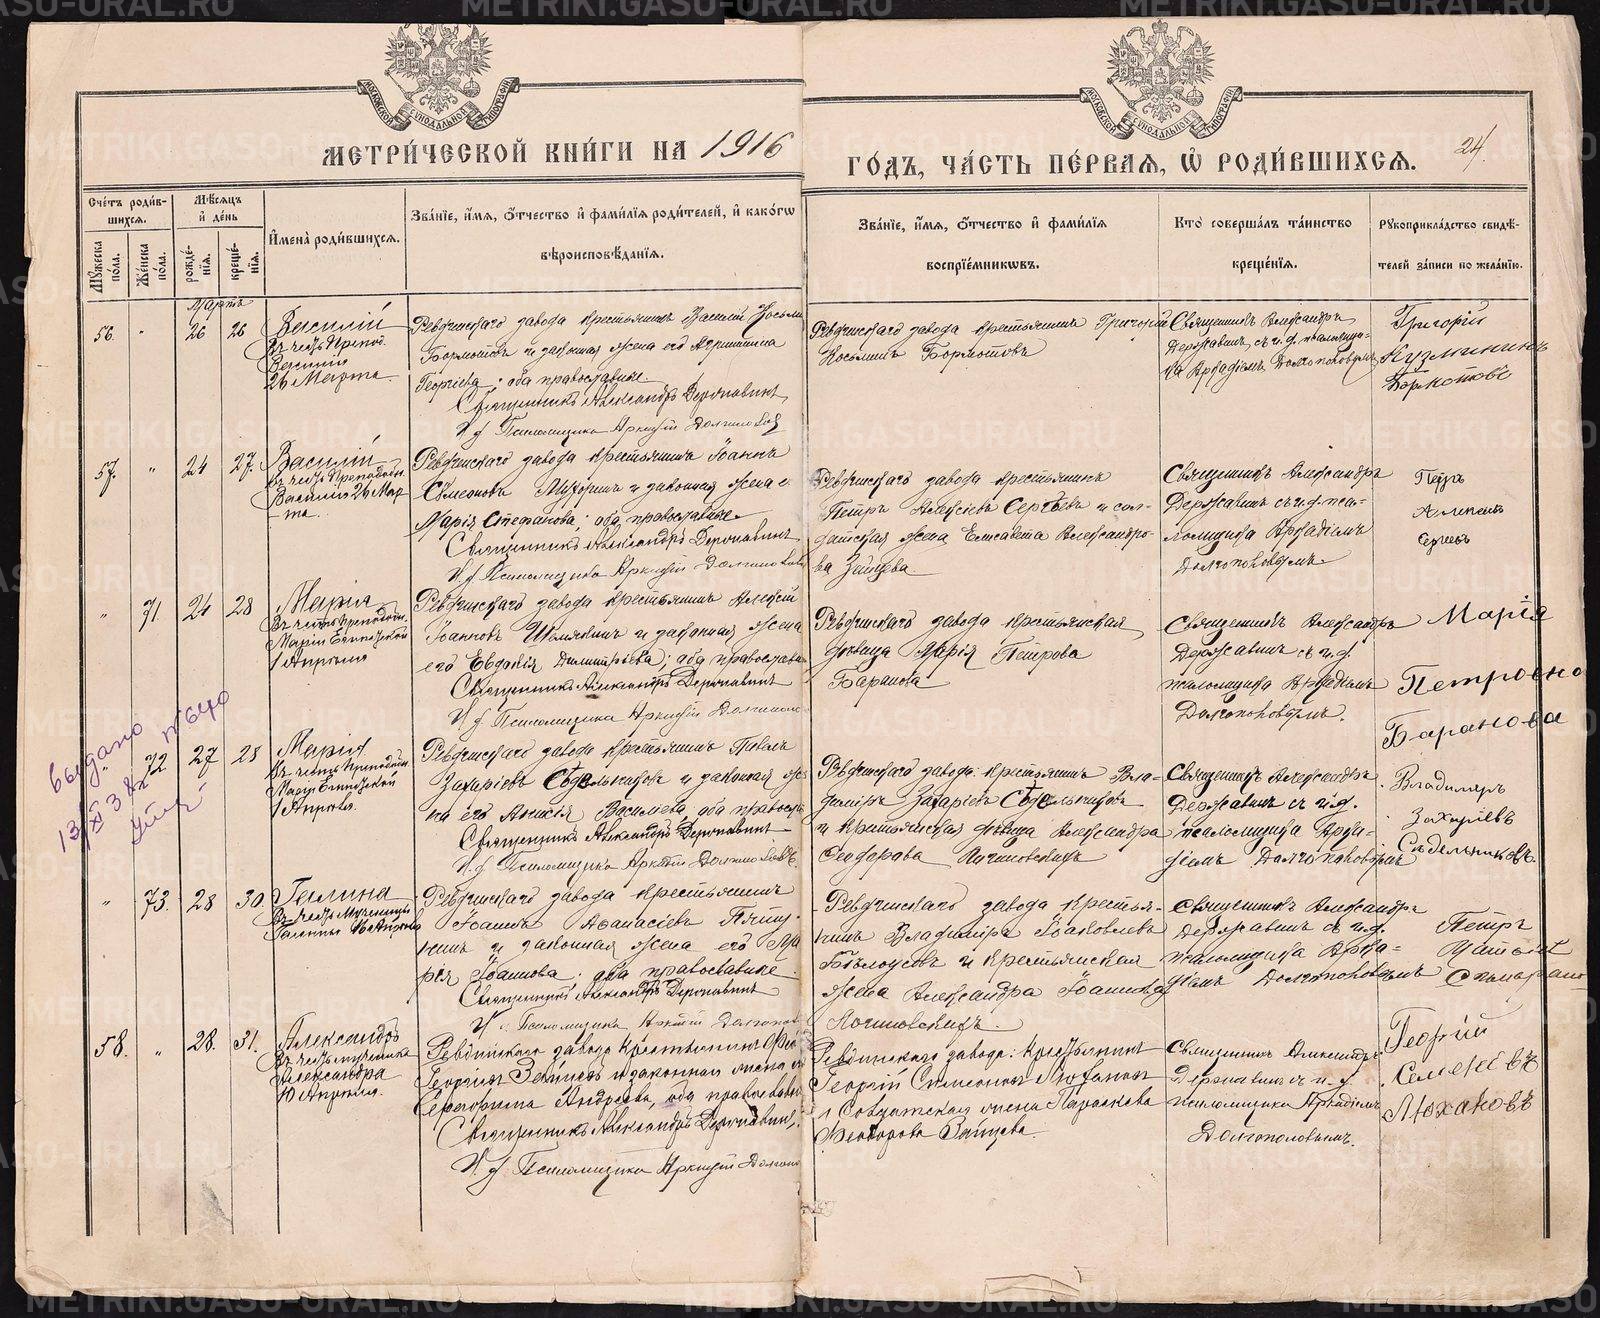 МЕТРИ́ЧЕСКОЙ КНИ́ГИ НА 1916
ГО́ДЪ, ЧА́СТЬ ПЕ́РВАѦ, Ѡ РОДИ́ВШИХСѦ.
24
Сче́тъ роди́в-
шихсѧ.
Мѣсѧцъ
и де́нь
Имена̀ роди́вшихсѧ.
Зва́нїе, и́мѧ, о́тчество и фами́лїѧ роди́телей, и како́гѡ
вѣроисповѣ́данїѧ.
Мꙋ́жеска
по́ла.
Же́нска
по́ла.
рожде́-
нїѧ.
креще́-
нїѧ.
Зва́нїе, и́мѧ, о́тчество и фами́лїѧ
воспрїе́мникѡвъ.
Кто̀ соверша́лъ та́инство
креще́нїѧ.
Рꙋкоприкла́дство свидѣ́-
телей за́писи по жела́нїю.
Мартъ
56. " 26 26
Василій
въ честь Препод.
Василія
26 Марта.
Ревдинскаго завода крестьянинъ Василій Косьмин
Бормотовъ и законная жена его
Георгіева; оба православные.
Священникъ Александръ Державинъ
И. д. Псаломщика Аркадій Долгополов
Ревдинскаго завода крестьянинъ Григорій
Косьминъ Бормотовъ
Священникъ Александръ
Державинъ съ и. д. псаломщи-
ка Аркадіемъ Долгополовымъ
Григорій
Кузминимъ
Бормотовъ
57. " 24 27.
Василій
въ честь Преподобн.
Василія 26 Мар-
та.
Ревдинскаго завода крестьянинъ Іоаннъ
Сѵмеоновъ и законная жена е
Марія Стефанова; оба православные
Священникъ Александръ Державинъ
И. д. Псаломщика Аркадій Долгополов
Ревдинскаго завода крестьянинъ
Петръ Алексіевъ Сергѣевъ и сол-
датская жена Елисавета Александро-
ва Зайцева.
Священникъ Александръ
Державинъ съ и. д. пса-
ломщика Аркадіемъ
Долгополовымъ.
Петръ
Сергеевъ
" 71. 24 28
Марія
въ честь Преподобн.
Маріи Египетской
1 Апрѣля
Ревдинскаго завода крестьянинъ Алексій
Іоанновъ Шемякинъ и законная жена
его Евдокія Димитріева; оба православн
Священникъ Александръ Державинъ
И. д. Псаломщика Аркадій Долгополо
Ревдинскаго завода крестьянская
дѣвица Марія Петрова
Баранова
Священникъ Александръ
Державинъ съ и. д.
псаломщика Аркадіемъ
Долгополовымъ.
Марія
Петровна
Баранова
выдано
13/XI 38
" 72 27 28
Марія
въ честь Преподобн.
Маріи Египетской
1 Апрѣля.
Ревдинскаго завода крестьянинъ Павелъ
Захаріевъ Сѣдельниковъ и законная же-
на его Анисія Василіева, оба православ
Священникъ Александръ Державинъ
И. д. Псаломщика Аркадій Долгополовъ
Ревдинскаго завода: крестьянинъ Вла-
димиръ Захаріевъ Сѣдельниковъ
и крестьянская дѣвица Александра
Ѳеодорова
Священникъ Александръ
Державинъ съ и. д.
псаломщика Арка-
діемъ Долгополовымъ
Владимиръ
Захаріевъ
Сѣдельниковъ
" 73. 28 30.
Галина
въ честь Мученицы
Галины 16 Апрѣля
Ревдинскаго завода крестьянинъ
Іоаннъ Аѳанасіевъ
и законная жена его Ма-
рія Іоаннова; оба православные.
Священникъ Александръ Державинъ
И. д. Псаломщика Аркадій Долгопол
Ревдинскаго завода крестья-
нинъ Владиміръ Іаковлевъ
Бѣлоусовъ и крестьянская
жена Александра Іоаннова
Священникъ Александръ
Державинъ съ и. д.
псаломщика Арка-
діемъ Долгополовымъ
Петръ
58. " 28. 31.
Александръ
въ честь мученика
Александра
10 Апрѣля.
Ревдинскаго завода крестьянинъ
Георгіевъ Зайцевъ и законная жена е
Андреева, оба православн
Священникъ Александръ Державинъ.
И. д. Псаломщика Аркадій Долгопо
Ревдинскаго завода: крестьянинъ
Георгій Сѵмеоновъ Люхановъ
и Солдатская жена Параскева
Ѳеодорова Зайцева.
Священникъ Александръ
Державинъ съ и. д.
псаломщика Аркадіемъ
Долгополовымъ.
Георгій
Семеновъ
Люхановъ
METRIKI.GASU-URAL.RU